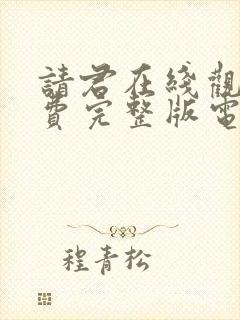 請君在綫觀
費完整版電
程青松